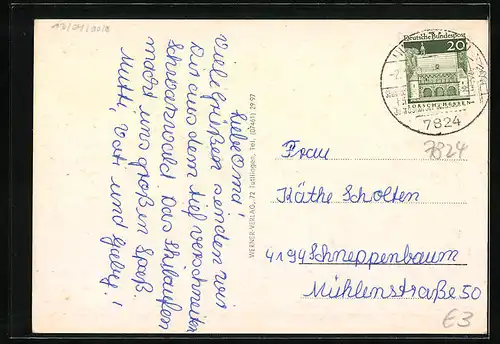 Liebe Oma!
Viele Grüßen senden wir
Dir aus dem tief verschneiten
Schwarzwald. Das Skilaufen
macht uns großen Spaß.
Mutti, Vati und Gaby.!
WERNER-VERLAG, 72 Tuttlingen, Tel. (07461) 29 97
Deutsche Bundespost
20
LORSCH/HESSEN
7824
7824
Frau
Käthe Scholten
4194 Schneppenbaum
Mühlenstraße 50
E3